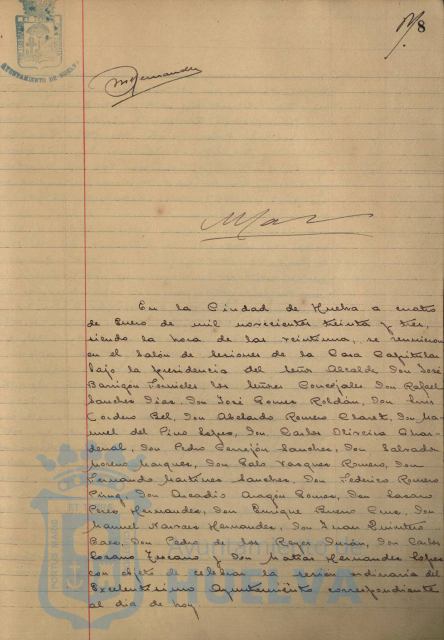 8
AYUNTAMIENTO DE HUELVA
M Hernandez
En la Ciudad de Huelva a cuatro
de Enero de mil novecientos treinta y tres,
siendo la hora de las veintiuna, se reunieron
en el Salón de sesiones de la Casa Capitular
bajo la presidencia del Señor Alcalde Don José
Barrigón Fornieles los Señores Concejales Don Rafael
Sanchez Diaz, Don José Gomez Roldán, Don Luis
Cordero Bel, Don Abelardo Romero Claret, Don Ma-
nuel del Pino Lopez, Don Carlos Oliveira Chardenal, Don Pedro Cerrejón Sanchez, Don Salvador
Moreno Marquez, Don Galo Vazquez Romero, Don
Fernando Martinez Sanchez, Don Federico Romero
Pérez, Don Arcadio Aragón Gomez, Don Lazaro
Pérez Hernandez, Don Enrique Bueno Cruz, Don
Manuel Narvaez Hernandez, Don Juan Quintero
Baez, Don Pedro de los Reyes Durán, Don Carlos
Lozano y Don Matias Hernandez Lopez
con objeto de celebrar la sesión ordinaria del
Excelentísimo Ayuntamiento correspondiente
al dia de hoy.
Ayuntamiento de
HUELVA